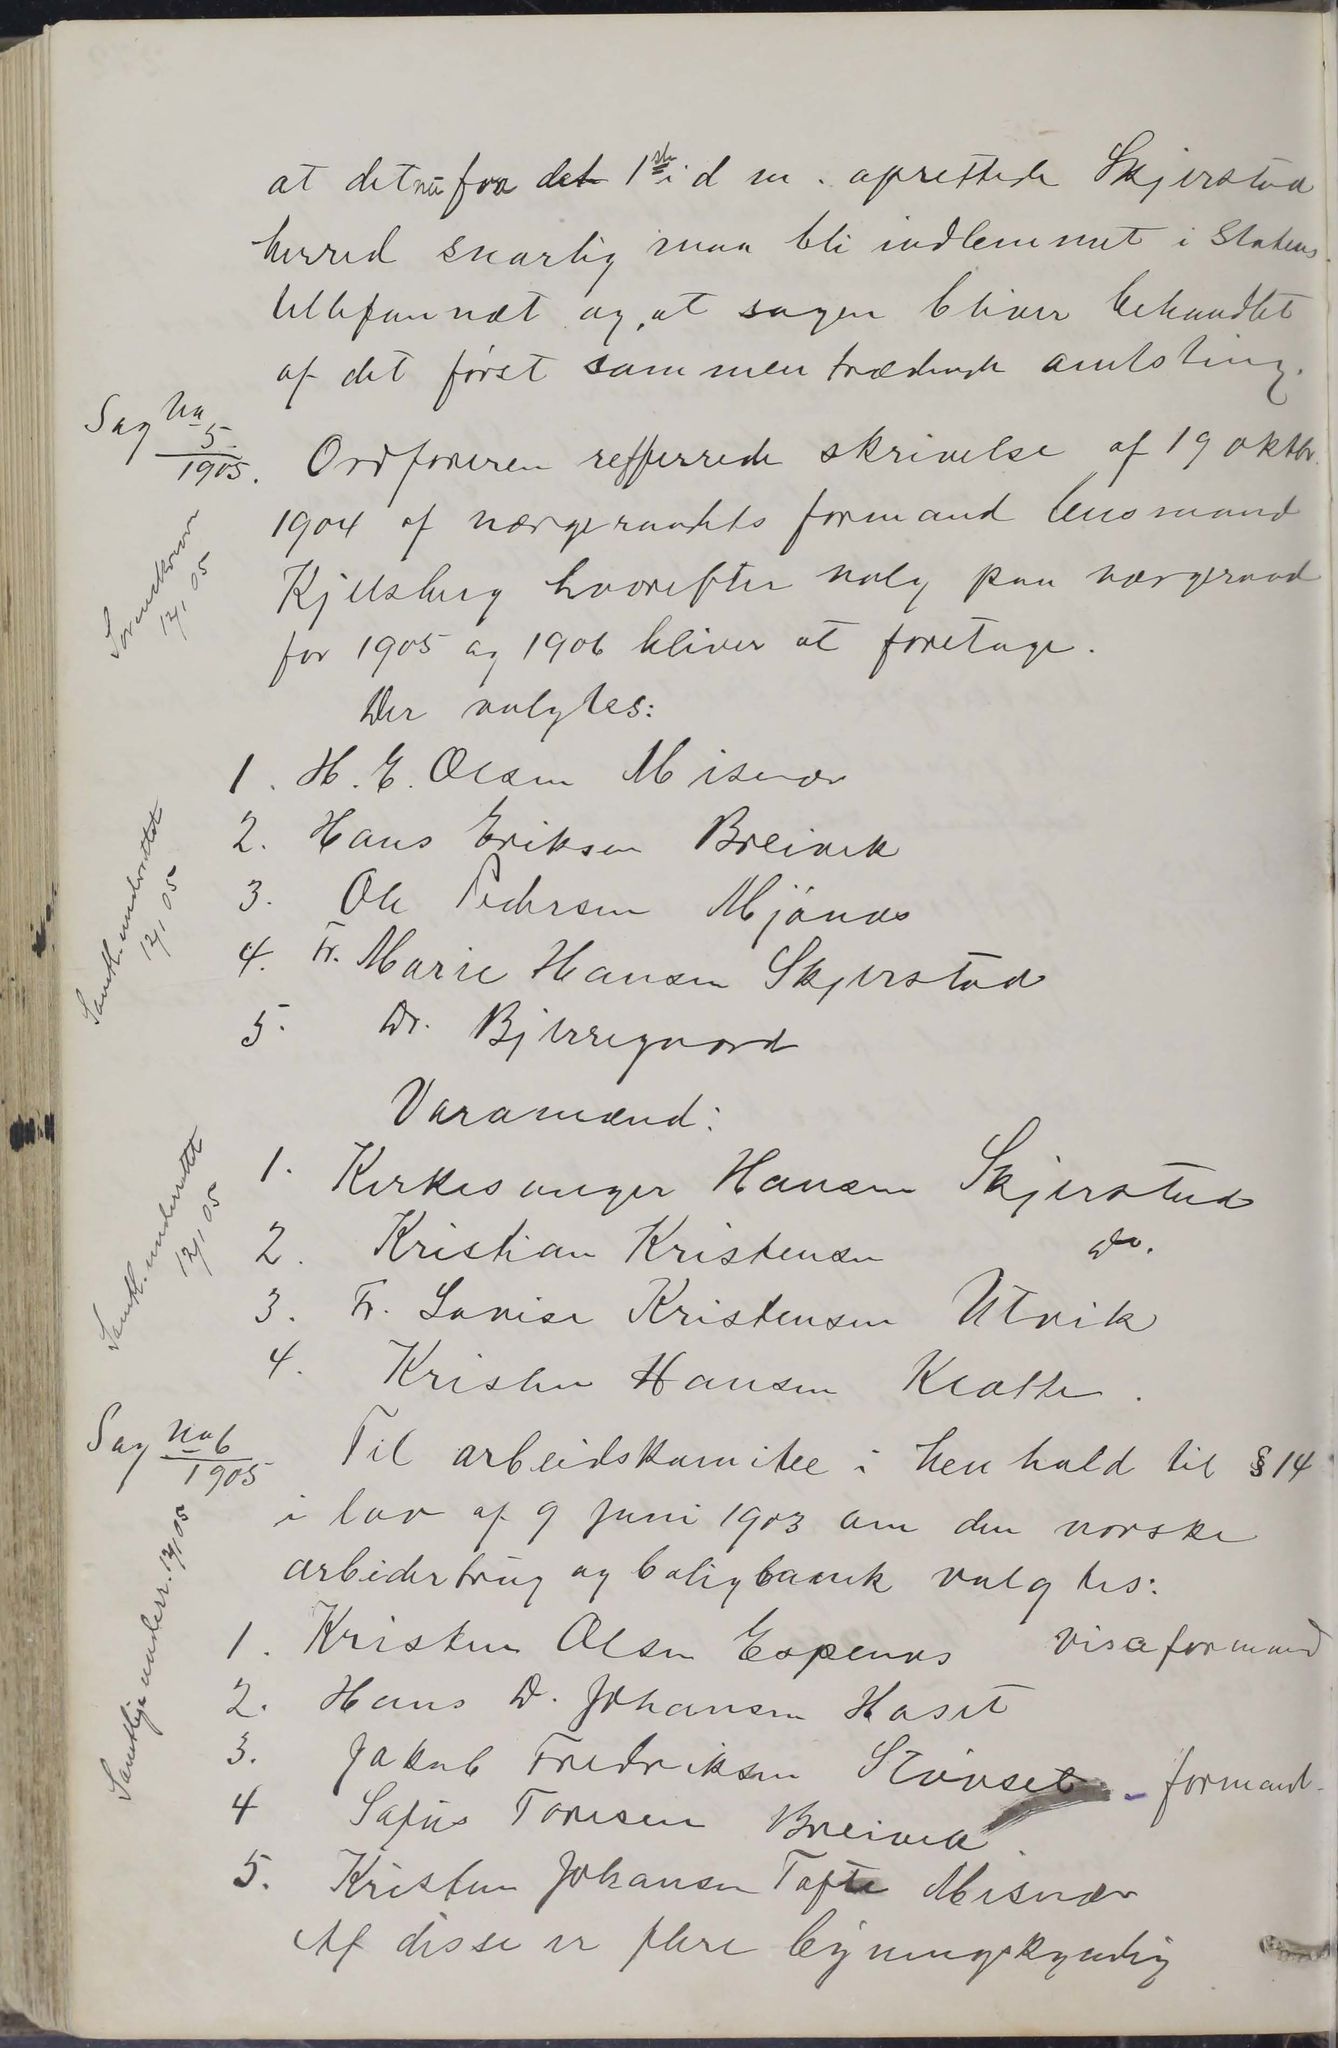 at det nu fra det 1ste i d m. oprettede Skjerstad
herred snarlig maa bli indlemmet i Statens
tellefonnæt og, at sagen bliver behandlet
af det først sammentrædende amtsting.
Sag No 5
1905.
Ordføreren refererede skrivelse af 19 oktbr.
1904 af værgeraadets formand lensmand
Kjelsberg hvorefter valg paa værgeraad
for 1905 og 1906 bliver at foretage.
12/1 05
Der valgtes:
1. H. E. Olsen Misvær
2. Hans Eriksen Breivik
3. Ole Pedersen Mjønes
4. Fr. Marie Hansen Skjerstad
5. Dr. Bjerregaard
Samtl. underrettet
12/1 05
Varamænd:
1. Kirkesanger Hansen Skjerstad
2. Kristian Kristensen do.
3. Fr. Lovise Kristensen Utvik
4. Kristen Hansen Kletten.
Samtl. underrettet
12/1 05
Sag No 6
1905
Til arbeidskomitee i henhold til § 14
i lov af 9 juni 1903 om den norske
arbeiderbrug og boligbank valgtes:
1. Kristen Olsen Espenes viseformand
2. Hans D. Johansen Haset
3. Jakob Fredriksen Støvset - formand
4 Sefus Toresen Breivik
5. Kristen Johansen Tofte Misvær
Samtlige underr. 12/1 05
Af disse er flere bygningskyndig